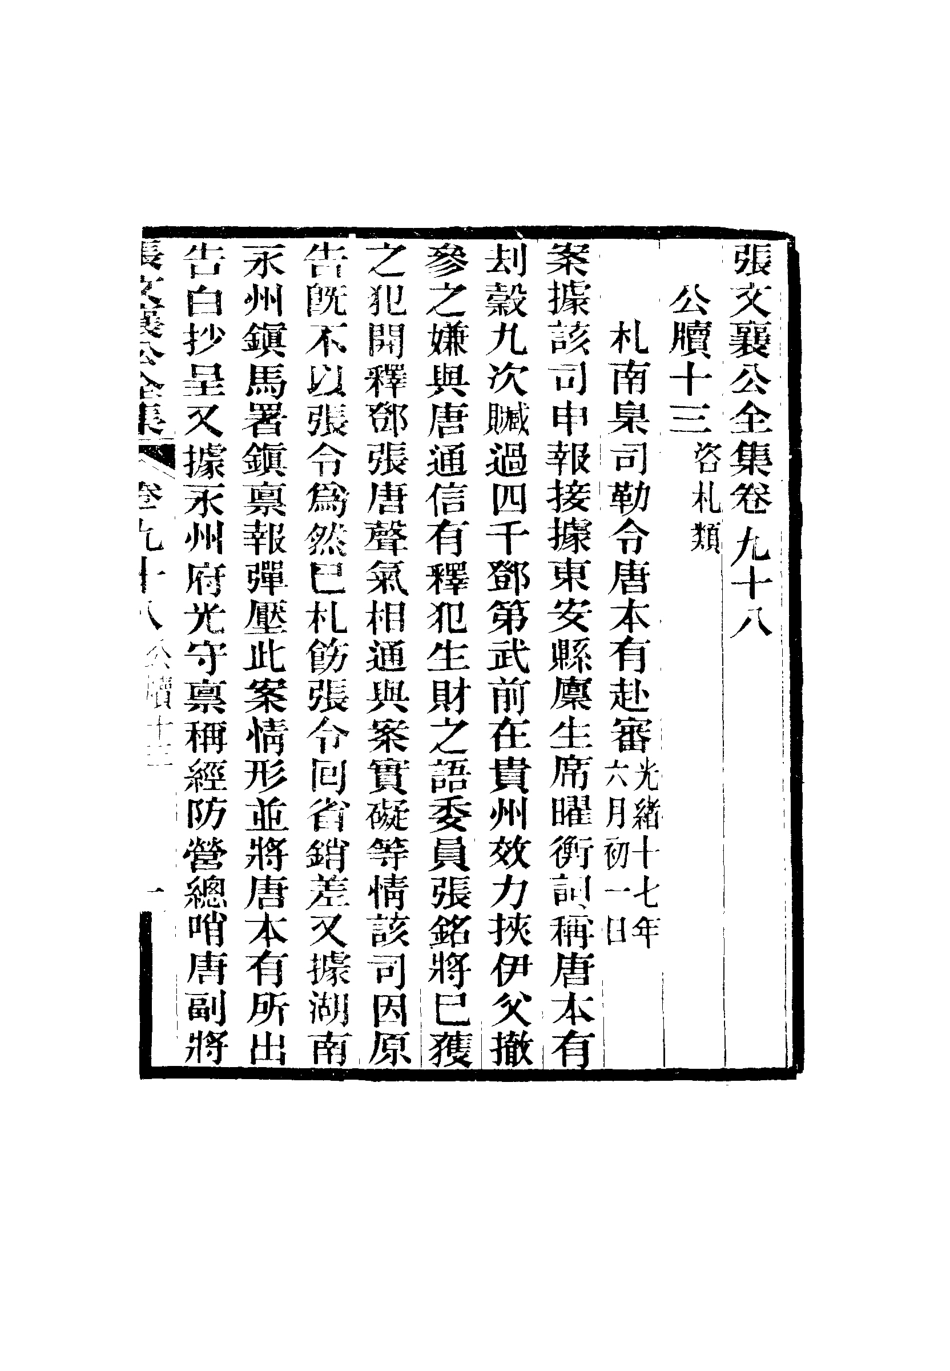 張文襄公全集卷九十八
公牘十三 咨札類
札南臬司勒令唐本有赴審 光緒十七年六月初一日
案據該司申報接據東安縣廩生席曜衡詞稱唐本有
刦穀九次贓過四千鄧第武前在貴州效力挾伊父撤
參之嫌與唐通信有釋犯生財之語委員張銘將已獲
之犯開釋鄧張唐聲氣相通與案實礙等情該司因原
告既不以張令爲然已札飭張令回省銷差又據湖南
永州鎭馬署鎭稟報彈壓此案情形並將唐本有所出
告白抄呈又據永州府光守稟稱經防營總哨唐副將
張文襄公全集 卷九十八 公牘十三 一